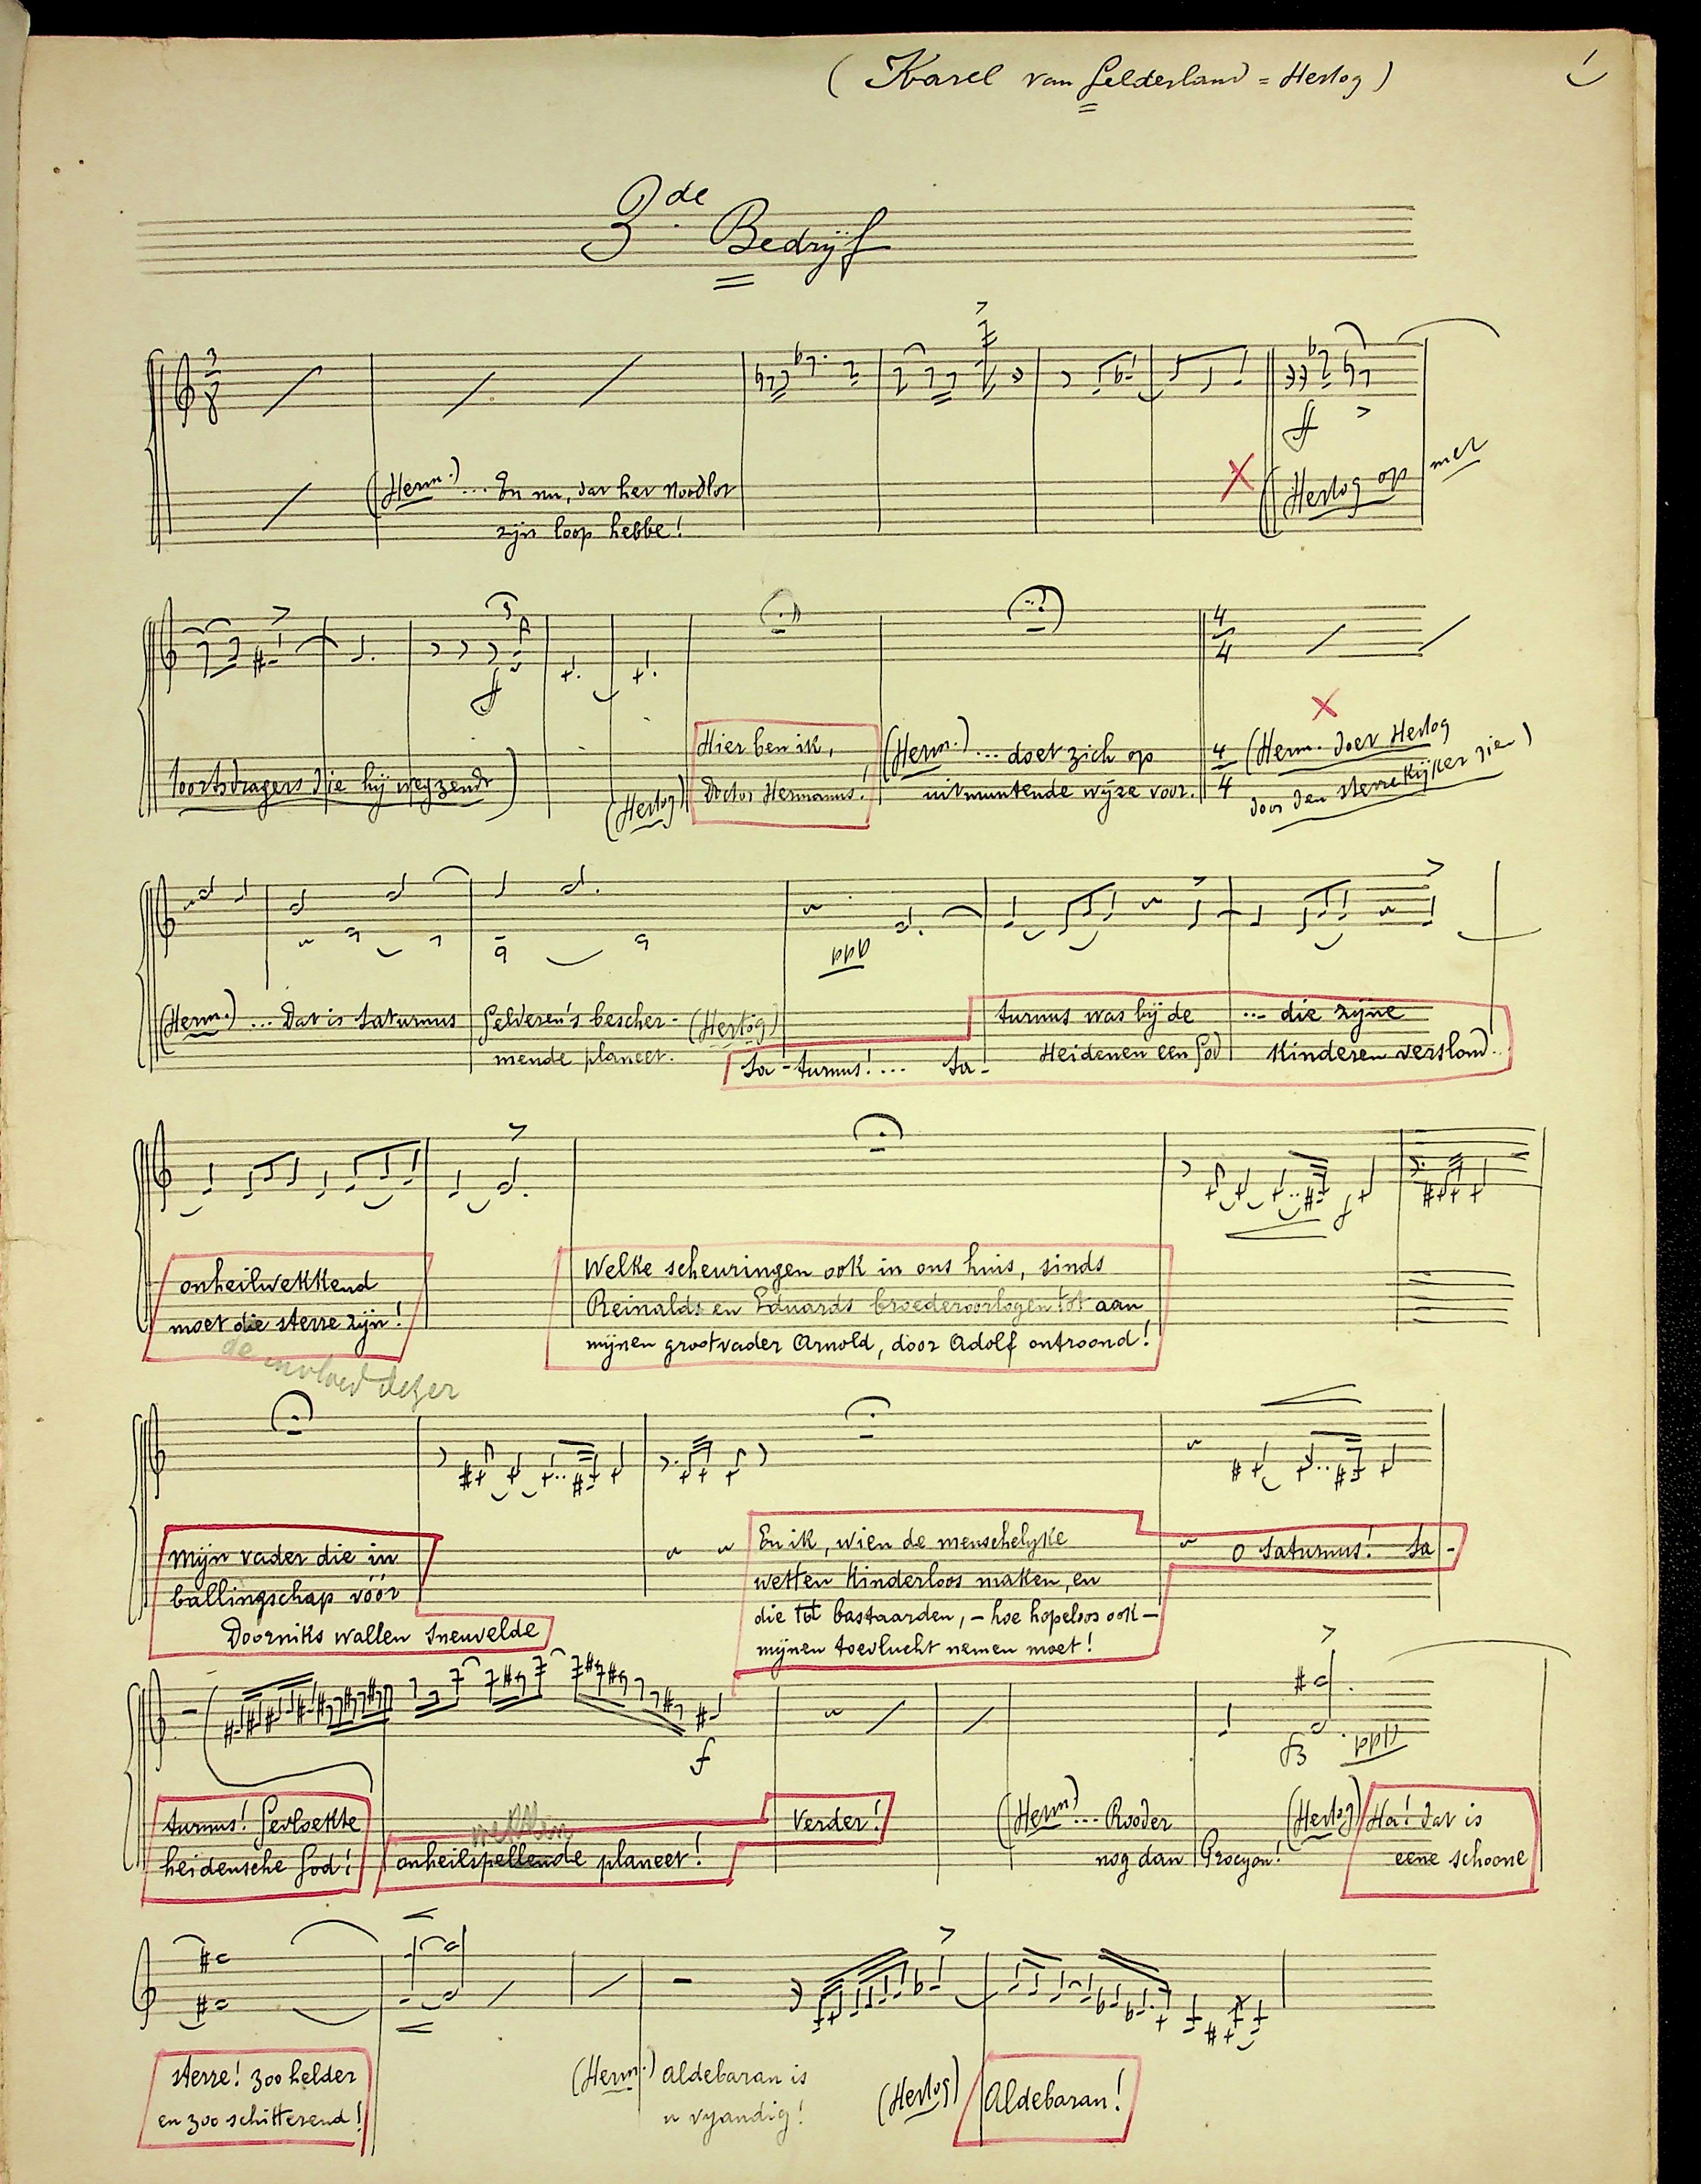 ( Karel van Gelderland = Hertog )
1
3de Bedrijf
3
8
(Herm.) ... En nu, dat het Noodlot
zijn loop hebbe!
ff
(Hertog op met
toortsdragers die hij wegzendt)
ff
(Hertog)
Hier ben ik,
Doctor Hermanus!
(Herm.) ... doet zich op
uitmuntende wijze voor.
4
4
4
4
(Herm. doet Hertog
door den sterrekijker zien)
ppp
(Herm.) ... Dat is Saturnus
Gelderen's bescher-
mende planeet.
(Hertog)
Sa-turnus! ... Sa-
turnus was bij de
Heidenen een God
... die zijne
Kinderen verslond.
f
onheilwekkend
moet die sterre zijn!
de invloed dezer
Welke scheuringen ook in ons huis, sinds
Reinalds en Eduards broederoorlogen tot aan
mijnen grootvader Arnold, door Adolf ontroond!
Mijn vader die in
ballingschap vóór
Doorniks wallen sneuvelde
En ik, wien de menschelijke
wetten Kinderloos maken, en
die tot bastaarden, - hoe hopeloos ook -
mijnen toevlucht nemen moet!
O Saturnus! Sa-
f
fz
ppp
turnus! Gevloekte
heidensche God!
onheilspellende planeet!
Verder!
(Herm) ... Rooder
nog dan Procyon!
(Hertog) Ha! dat is
eene schoone
sterre! zoo helder
en zoo schitterend!
(Herm.) Aldebaran is
u vyandig!
(Hertog) Aldebaran!